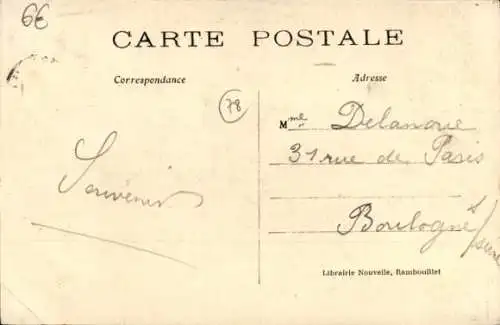 6€
CARTE POSTALE
Correspondance
Adresse
78
Mme Delanoue
31 rue de Paris
Souvenir
Boulogne s/seine
Librairie Nouvelle, Rambouillet